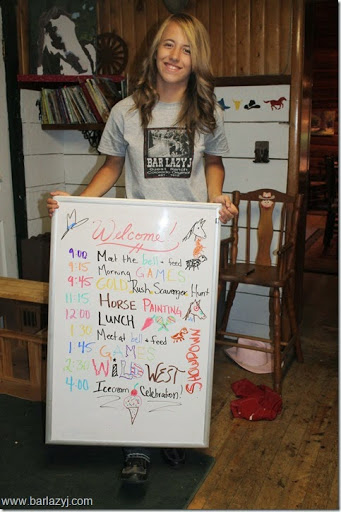 BAR LAZY J
Guest Ranch
Welcome!
9:00 Meet the bell + feed
9:15 Morning GAMES
9:45 GOLD Rush Scavenger Hunt
11:15 HORSE PAINTING
12:00 LUNCH
1:30 Meet at bell + feed
1:45 GAMES
2:30 WILD WEST
SHOWDOWN
4:00 Icecream Celebration!
www.barlazyj.com